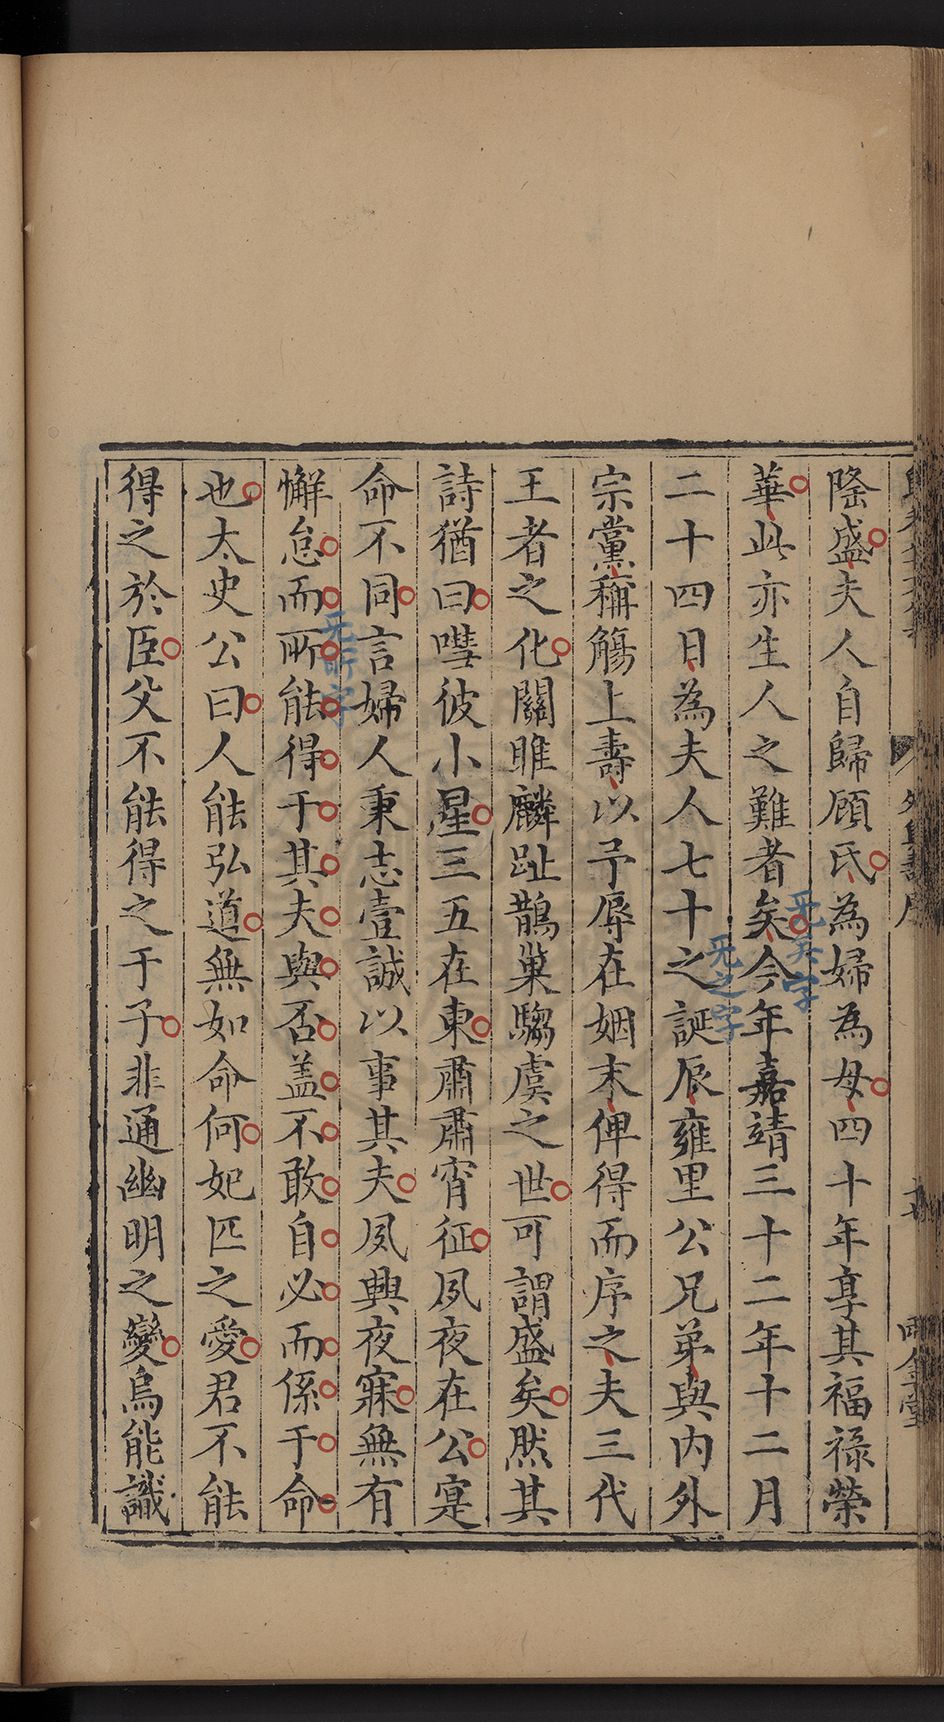 隆盛夫人自歸顧氏為婦為母四十年享其福祿榮
華此亦生人之難者矣今年嘉靖三十二年十二月
二十四日為夫人七十之誕辰雍里公兄弟與内外
宗黨稱觴上壽以予辱在姻末俾得而序之夫三代
王者之化關雎麟趾鵲巢騶虞之世可謂盛矣然其
詩猶曰嘒彼小星三五在東肅肅宵征夙夜在公寔
命不同言婦人秉志壹誠以事其夫夙興夜寐無有
懈怠而所能得于其夫與否盖不敢自必而係于命
也太史公曰人能弘道無如命何妃匹之愛君不能
得之於臣父不能得之于子非通幽明之變烏能識
无矣字
无之字
无所字